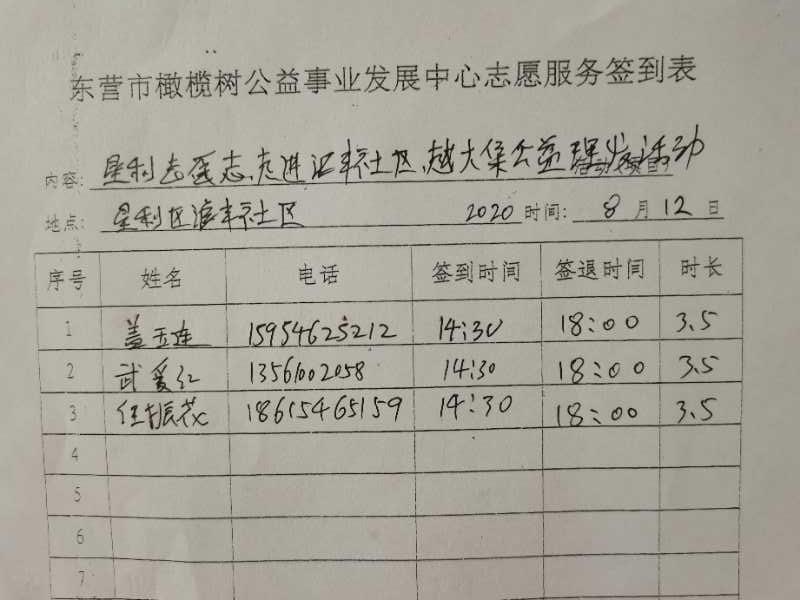 东营市橄榄树公益事业发展中心志愿服务签到表
内容: 垦利志愿者走进汇丰社区、赶大集公益理发活动
地点: 垦利区汇丰社区 2020 时间: 8 月 12 日
序号 姓名 电话 签到时间 签退时间 时长
1 盖玉连 15954625212 14:30 18:00 3.5
2 武爱红 13561002058 14:30 18:00 3.5
3 任振花 18615465159 14:30 18:00 3.5
4
5
6
7